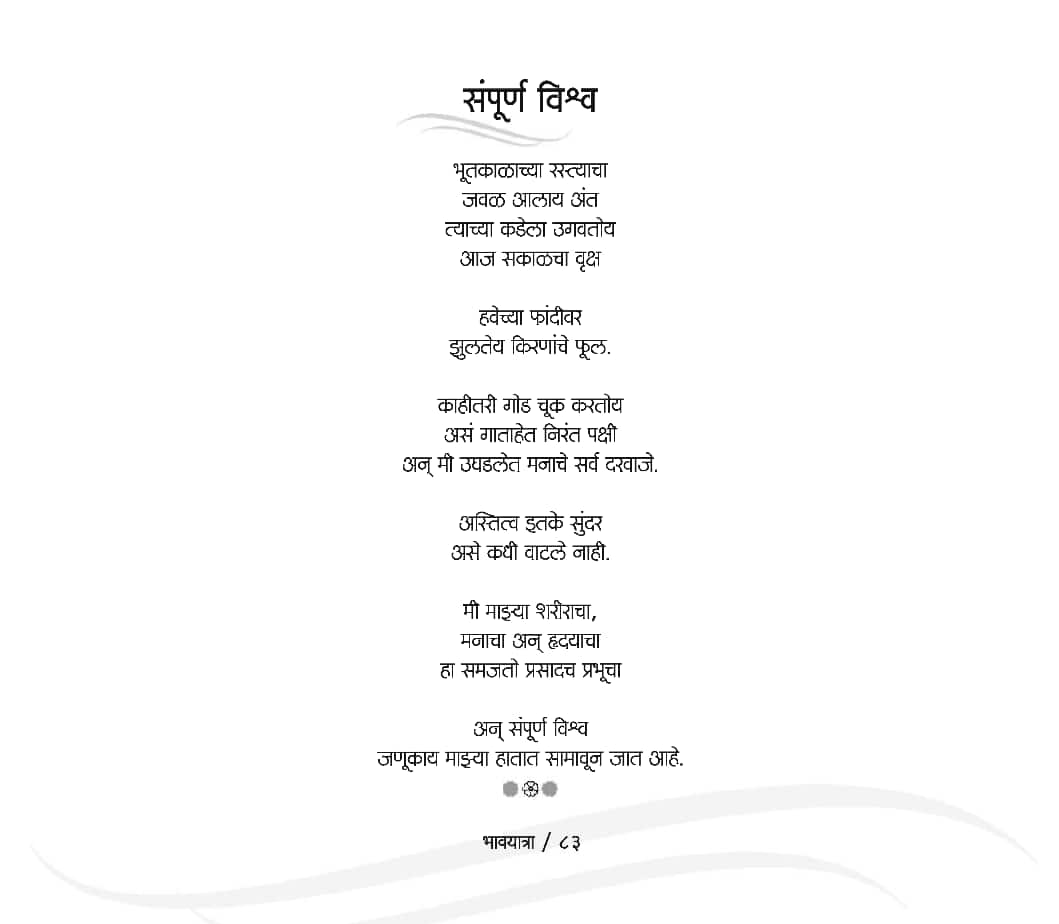 संपूर्ण विश्व
भूतकाळाच्या रस्त्याचा
जवळ आलाय अंत
त्याच्या कडेला उगवतोय
आज सकाळचा वृक्ष
हवेच्या फांदीवर
झुलतेय किरणांचे फूल.
काहीतरी गोड चूक करतोय
असं गाताहेत निरंत पक्षी
अन् मी उघडलेत मनाचे सर्व दरवाजे.
अस्तित्व इतके सुंदर
असे कधी वाटले नाही.
मी माझ्या शरीराचा,
मनाचा अन् हृदयाचा
हा समजतो प्रसादच प्रभूचा
अन् संपूर्ण विश्व
जणूकाय माझ्या हातात सामावून जात आहे.
भावयात्रा / ८३